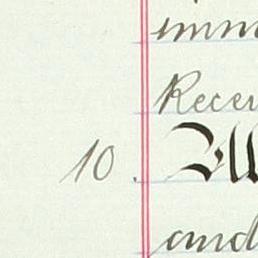 imm
Recei
10.
and